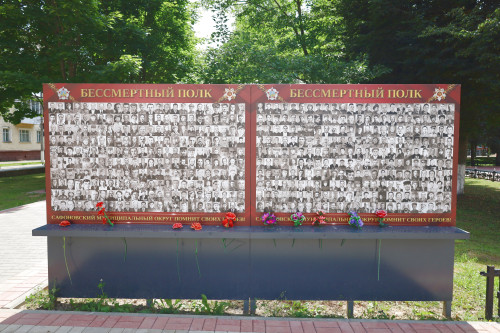 БЕССМЕРТНЫЙ ПОЛК
БЕССМЕРТНЫЙ ПОЛК
САФОНОВСКИЙ МУНИЦИПАЛЬНЫЙ ОКРУГ ПОМНИТ СВОИХ ГЕРОЕВ
МУНИЦИПАЛЬНЫЙ ОКРУГ ПОМНИТ СВОИХ ГЕРОЕВ